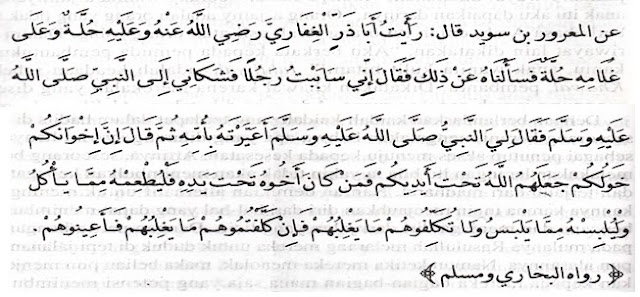 عن المعرور بن سويد قال: رَأَيْتُ أَبَا ذَرٍّ الْغِفَارِيَّ رَضِيَ اللَّهُ عَنْهُ وَعَلَيْهِ حُلَّةٌ وَعَلَى
غُلَامِهِ حُلَّةٌ فَسَأَلْنَاهُ عَنْ ذَلِكَ فَقَالَ إِنِّي سَابَبْتُ رَجُلًا فَشَكَانِي إِلَى النَّبِيِّ صَلَّى اللَّهُ
عَلَيْهِ وَسَلَّمَ فَقَالَ لِي النَّبِيُّ صَلَّى اللَّهُ عَلَيْهِ وَسَلَّمَ أَعَيَّرْتَهُ بِأُمِّهِ ثُمَّ قَالَ إِنَّ إِخْوَانَكُمْ
خَوَلُكُمْ جَعَلَهُمْ اللَّهُ تَحْتَ أَيْدِيكُمْ فَمَنْ كَانَ أَخُوهُ تَحْتَ يَدِهِ فَلْيُطْعِمْهُ مِمَّا يَأْكُلُ
وَلْيُلْبِسْهُ مِمَّا يَلْبَسُ وَلَا تُكَلِّفُوهُمْ مَا يَغْلِبُهُمْ فَإِنْ كَلَّفْتُمُوهُمْ مَا يَغْلِبُهُمْ فَأَعِينُوهُمْ .
﴿ رواه البخاري ومسلم ﴾